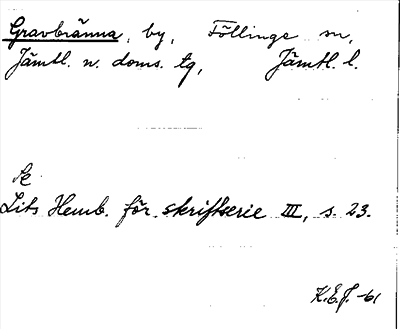 Gravbränna, by, Föllinge sn,
Jämtl. n. doms. tg, Jämtl. l.
Se
Lits Hemb. för. skriftserie III, s. 23.
K.E.J. -61